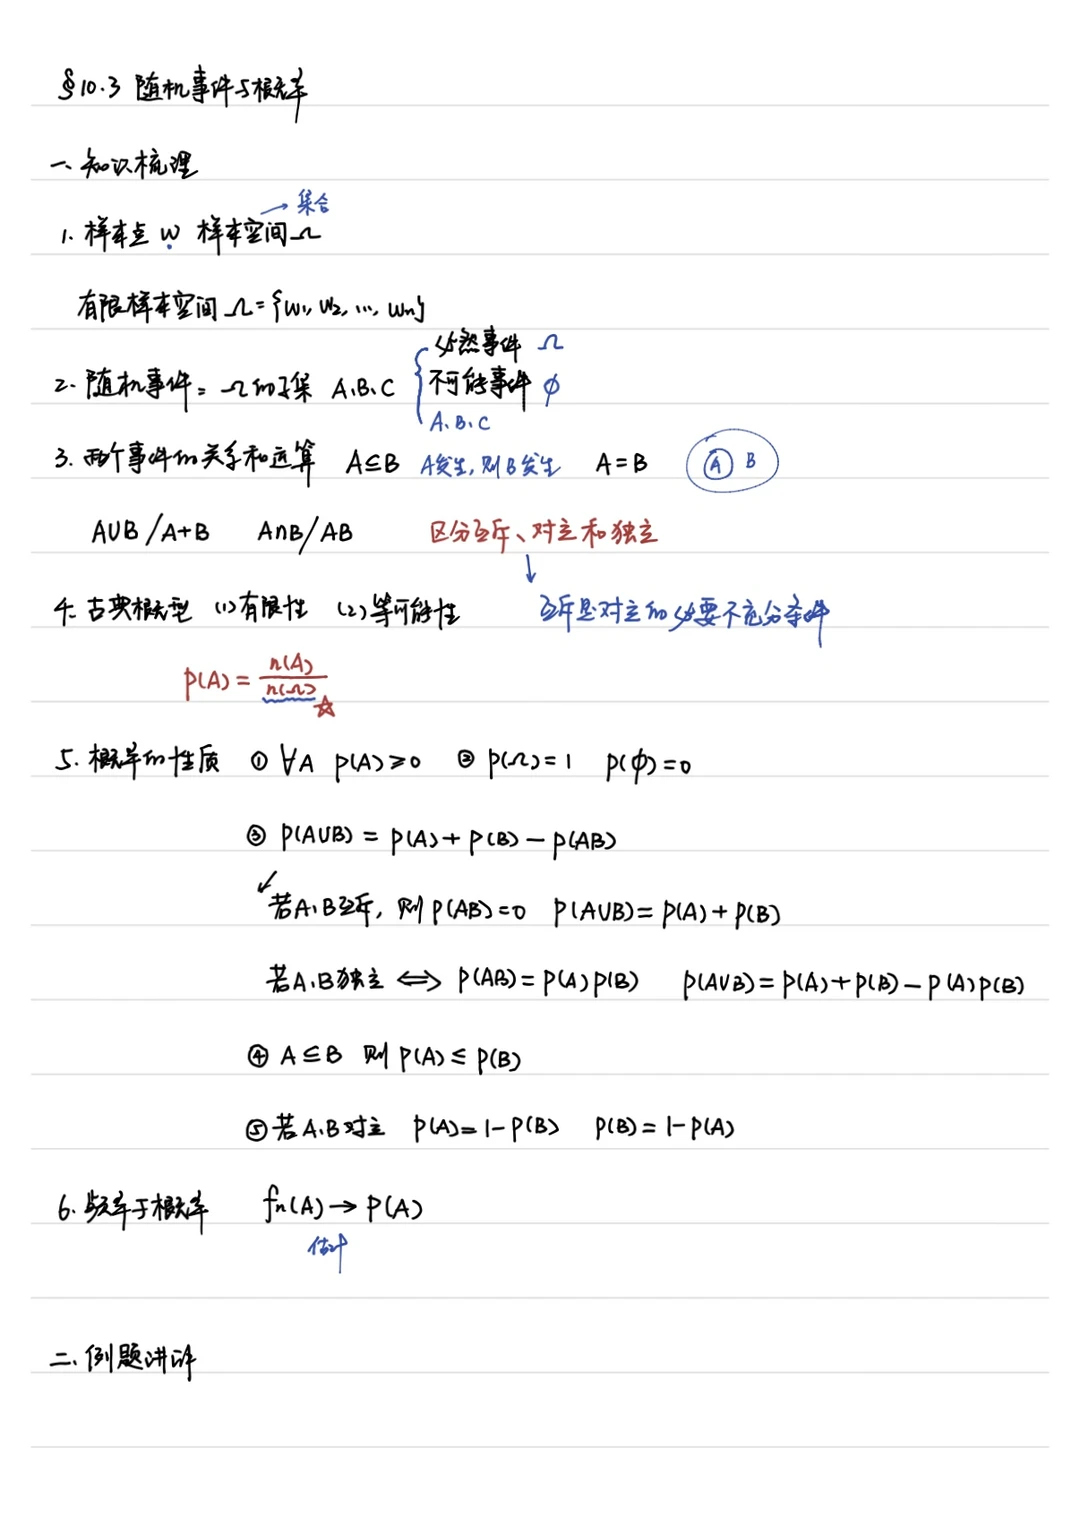 §10.3 随机事件与概率
一、知识梳理
→ 集合
1. 样本点 w 样本空间Ω
有限样本空间 Ω={w₁, w₂, ..., wn}
必然事件 Ω
2. 随机事件: Ω的子集 A、B、C 不可能事件 ϕ
A、B、C
3. 两个事件的关系和运算 A⊆B A发生,则B发生 A=B Ⓐ B
A∪B/A+B A∩B/AB 区分互斥、对立和独立
↓
4. 古典概型 (1)有限性 (2)等可能性 互斥是对立的必要不充分条件
P(A) = n(A)/n(Ω) ☆
5. 概率的性质 ① ∀A P(A)≥0 ② P(Ω)=1 P(ϕ)=0
③ P(A∪B) = P(A)+P(B)-P(AB)
↙若A、B互斥, 则P(AB)=0 P(A∪B)=P(A)+P(B)
若A、B独立 ⇔ P(AB)=P(A)P(B) P(A∪B)=P(A)+P(B)-P(A)P(B)
④ A⊆B 则P(A)≤P(B)
⑤ 若A、B对立 P(A)=1-P(B) P(B)=1-P(A)
6. 频率于概率 fn(A)→P(A)
估计
二、例题讲评